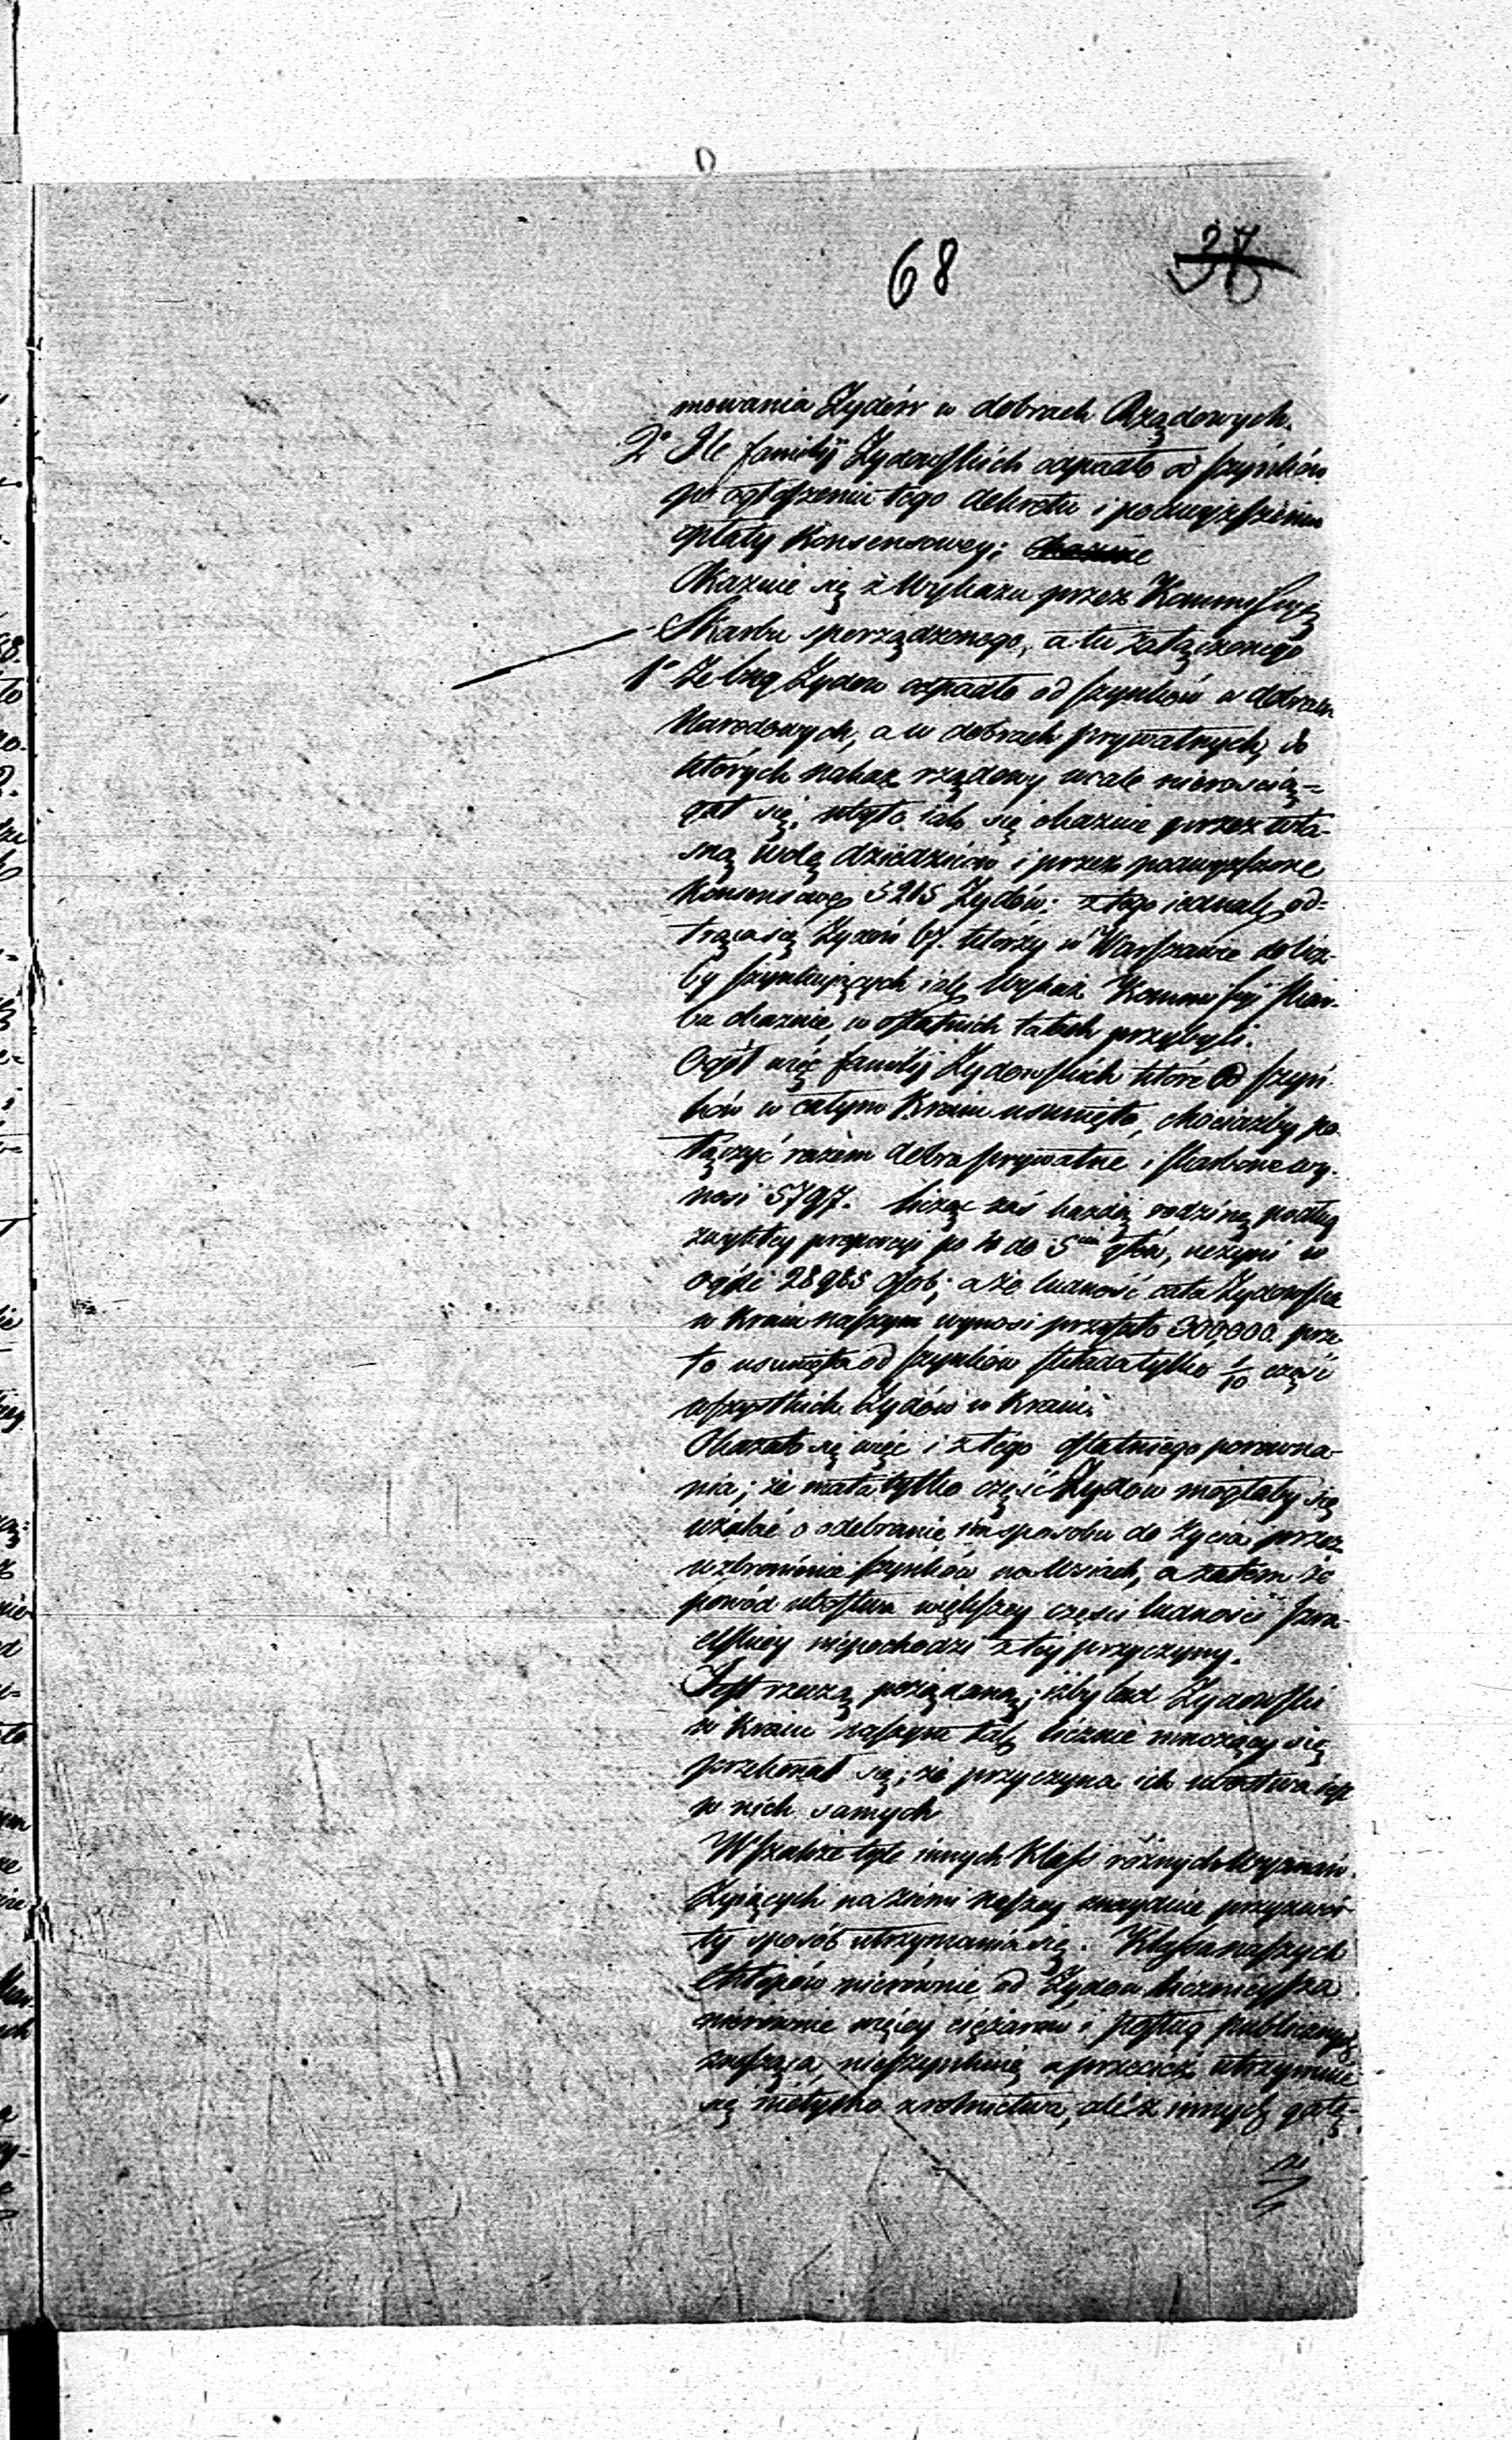 68
37
mowania Żydów w dobrach Rządowych.
2° Ile familij Żydowskich odpadło od szynków
po ogłoszeniu tego dekretu i podwyższeniu
opłaty Konsensowey;
Okazuie się z Wykazu przez Kommissyą
Skarbu sporządzonego, a tu załączonego
1° Że Żydow odpadło od szynków w dobrach
Narodowych, a w dobrach prywatnych, do
których nakaz rządowy wcale nierością=
gał się, ubyło iak się okazuie przez wła-
sną wolę dziedziców i przez podwyższone
Konsensowe 3215 Żydów; z tego iednak od=
trącaią Żydów 67. którzy w Warszawie do licz-
by szynkuiących iak Wykaz Kommissyi Skar-
bu okazuie, w ostatnich latach przybyli.
Ogół więc familij Żydowskich które od szyn-
ków w całym Kraiu usunięto, chociażby po-
łączyć razem dobra prywatne i skarbowe wy-
nosi 5797. licząc zaś każdą rodzinę podług
zwykłey proporcyi po 4 do 5ciu głów, uczyni w
ogóle 28985 osob; a że ludność cała Żydowska
w Kraiu naszym wynosi przeszło 300,000 prze
to usunięta od szynków składa tylko 1/10 część
wszystkich Żydów w Kraiu.
Okazało się więc i z tego ostatniego porowna-
nia; że mała tylko część Żydów mogłaby się
użalać o odebranie im sposobu do życia przez
wzbronienie szynków na Wsiach, a zatem że
powód ubóstwa większey części ludności Izra-
elskiey niepochodzi z tey przyczyny.
Jest rzeczą pożądaną; iżby lud Żydowski
w Kraiu naszym tak licznie mnożący się
przekonał się; że przyczyna ich ubostwa iest
w nich samych
Wszakże tyle innych Klass różnych Wyznań
Żyiących na ziemi naszey znayduie przyzwoi-
ty sposób utrzymania się. Klassa naszych
chłopów nierównie od Żydow licznieysza
nierównie więcey ciężarow i posług publicznych
znosząca, nieszynkuie a przecież utrzymuie
się nietylko z rolnictwa, ale z innych gałę-
zi